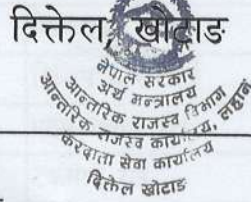 दिक्तेल, खोटाङ
नेपाल सरकार
अर्थ मन्त्रालय
आन्तरिक राजस्व विभाग
आन्तरिक राजस्व कार्यालय, लहान
करदाता सेवा कार्यालय
दिक्तेल खोटाङ